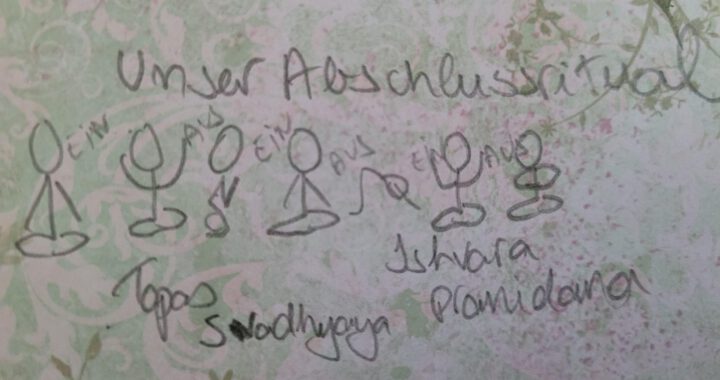 Unser Abschlussritual
EIN AUS EIN AUS EIN AUS
Ishvara
Tapas Pranidana
Swadhyaya